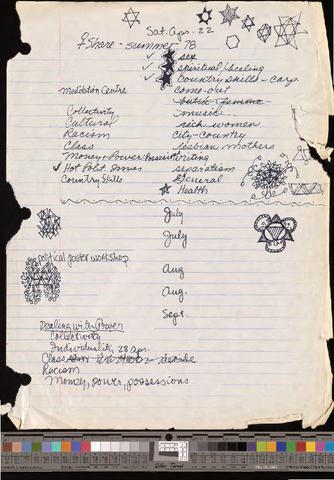 Sat. Apr. 22
♀Share - summer 78
✓ sex
✓ spiritual/healing
✓ Country skills - carp.
Maidston Centre come-out
butch femme
Collectivity music
Cultural sick women
Racism city-country
Class lesbian mothers
Money + Power Possess writing
✓ Hot Polit. Issues separatism
Country Skills General
Health
July
July
political poster workshop
Aug
Aug.
Sept.
Dealing with Power
Collectivity
Individuality 28 apr.
Class decide
Racism
Money, power, possessions